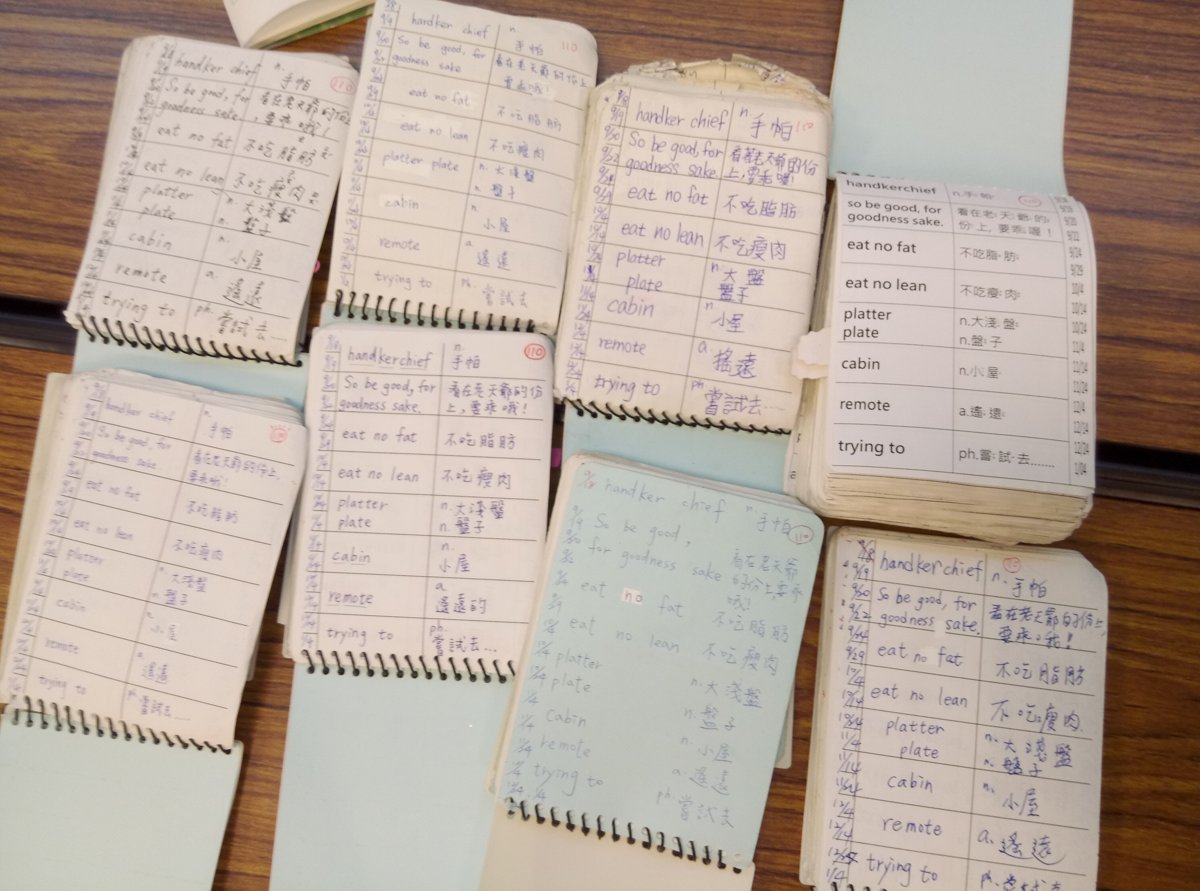 handker chief n. 手帕 110
So be good, for 看在老天爺的份
goodness sake. 上,要乖哦!
eat no fat 不吃脂肪
eat no lean 不吃瘦肉
platter n. 大淺盤
plate n. 盤子
cabin n. 小屋
remote a. 遙遠
trying to ph. 嘗試去....
handker chief n. 手帕 110
So be good, for 看在老天爺的份上
goodness sake 要乖哦!
eat no fat 不吃脂肪
eat no lean 不吃瘦肉
platter plate n. 大淺盤
n. 盤子
cabin n. 小屋
remote a. 遙遠
trying to ph. 嘗試去
handker chief n. 手帕 110
So be good, for 看在老天爺的份
goodness sake. 上,要乖喔!
eat no fat 不吃脂肪
eat no lean 不吃瘦肉
platter n. 大盤
plate 盤子
cabin n. 小屋
remote a. 搖遠
trying to ph. 嘗試去...
handkerchief n.手帕
so be good, for 看在老天爺的 9/20
goodness sake. 份上,要乖喔! 9/22
eat no fat 不吃脂肪 9/24
9/29
eat no lean 不吃瘦肉 10/4
10/14
platter n.大淺盤 10/24
plate n.盤子 11/4
cabin n.小屋 11/14
11/24
remote a.遙遠 12/4
12/14
trying to ph.嘗試去....... 12/24
1/04
handker chief n. 手帕
So be good, for 看在老天爺的份上,
goodness sake. 要乖喲!
eat no fat 不吃脂肪
eat no lean 不吃瘦肉
platter n. 大淺盤
plate n. 盤子
cabin n. 小屋
remote a. 遙遠
trying to ph. 嘗試去....
handkerchief n. 手帕 110
So be good, for 看在老天爺的份
goodness sake. 上,要乖哦!
eat no fat 不吃脂肪
eat no lean 不吃瘦肉
platter n. 大淺盤
plate n. 盤子
cabin n. 小屋
remote a. 遙遠的
trying to ph. 嘗試去...
handker chief n. 手帕 110
So be good, 看在老天爺
for goodness sake 的份上,要乖
哦!
eat no fat 不吃脂肪
eat no lean 不吃瘦肉
platter n. 大淺盤
plate n. 盤子
Cabin n. 小屋
remote a. 遙遠
trying to ph. 嘗試去
9/18 handkerchief n. 手帕
9/19
9/20 So be good, for 看在老天爺的份上,
9/22 goodness sake. 要乖哦!
9/24 eat no fat 不吃脂肪
9/29
10/4 eat no lean 不吃瘦肉
10/14
10/24 platter n. 大淺盤
11/4 plate n. 盤子
11/14 cabin n. 小屋
11/24
12/4 remote a. 遙遠
12/14
trying to ph. 嘗試去
1/4